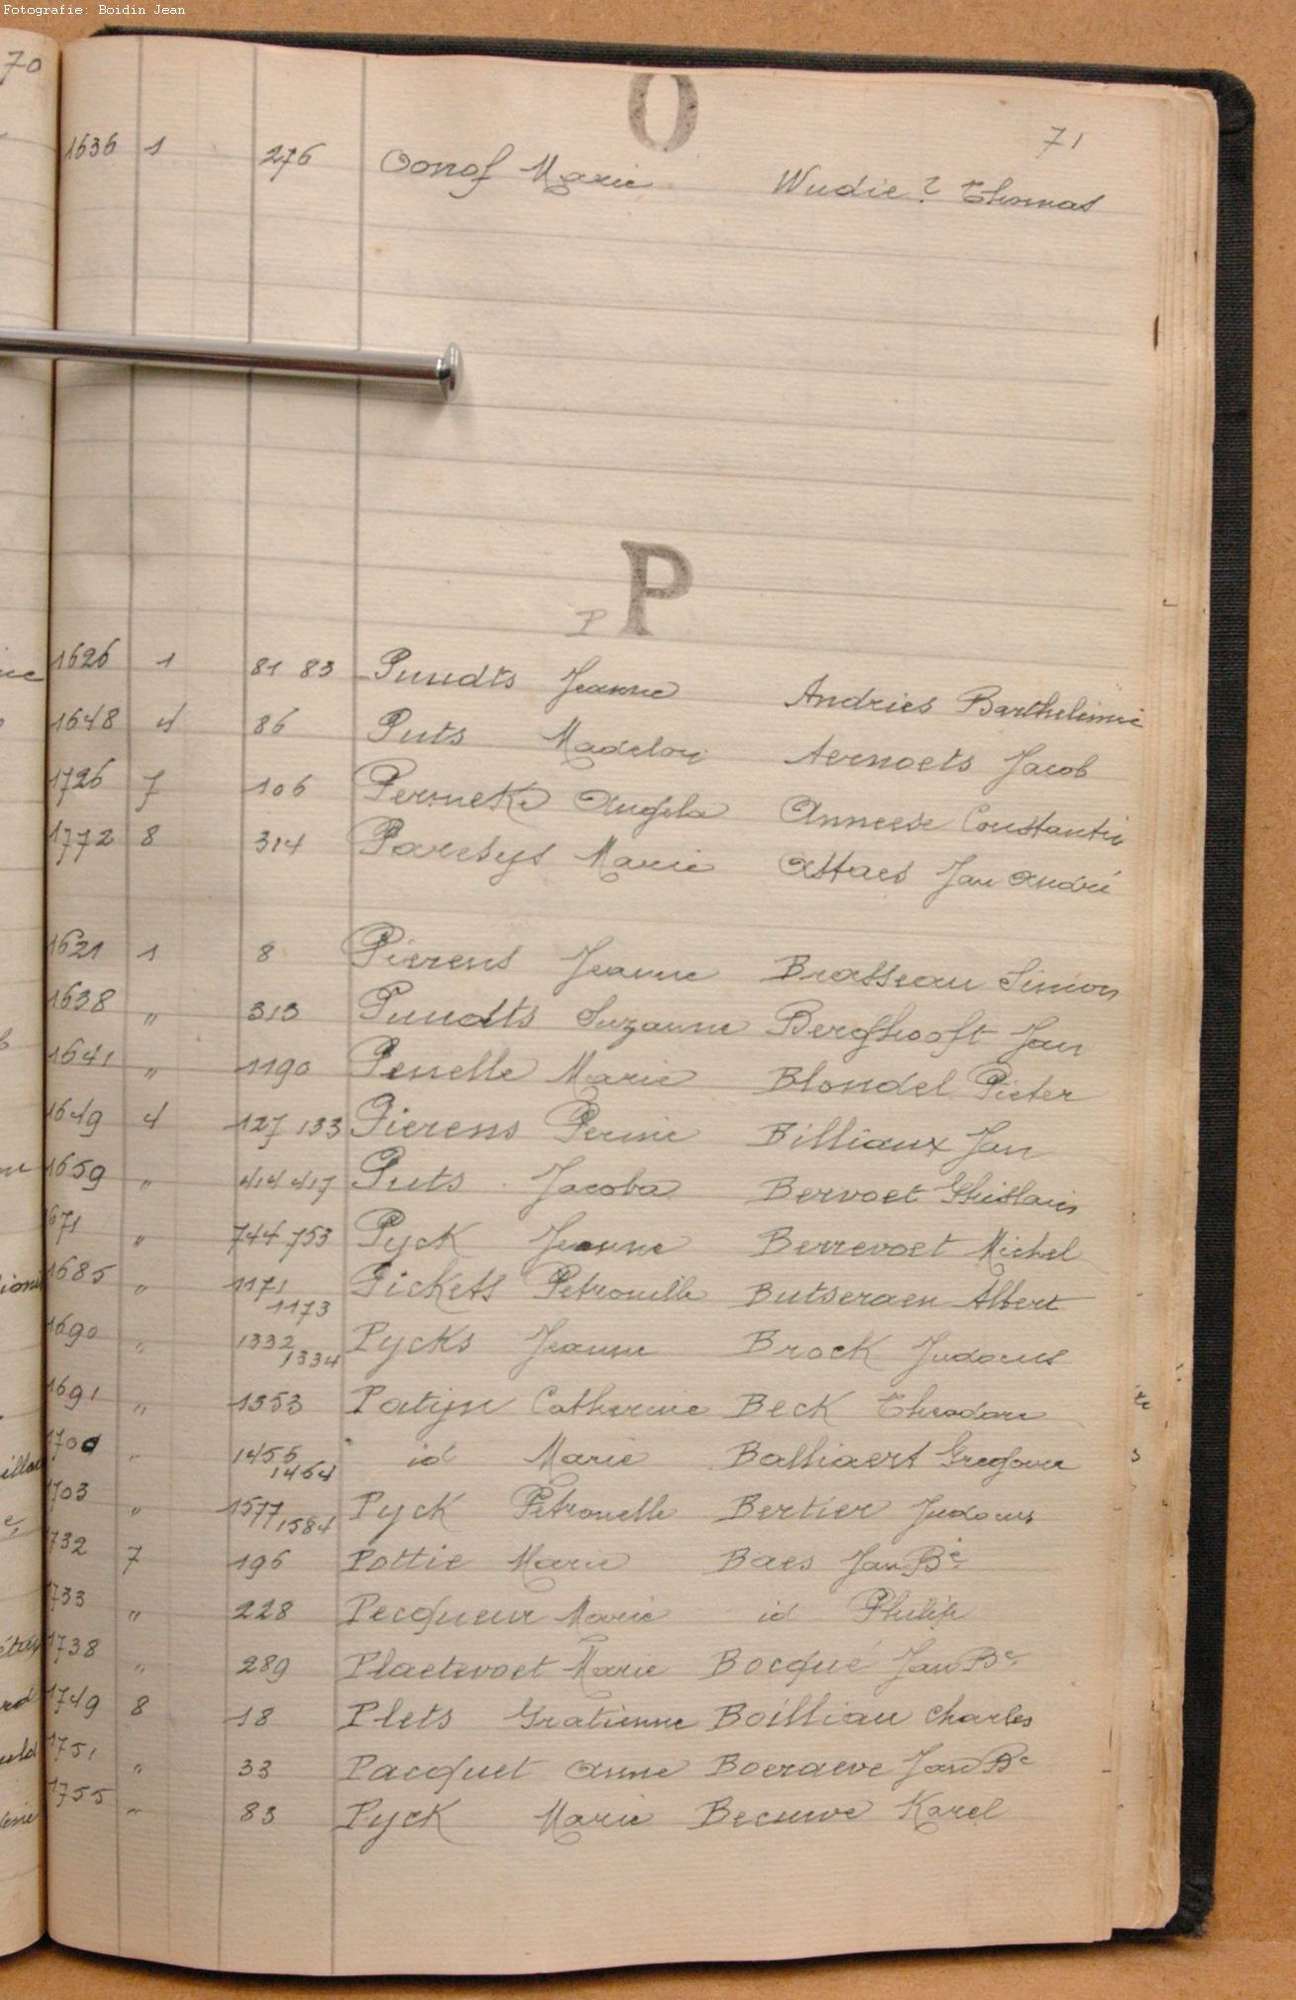 Fotografie: Boidin Jean
70
O
71
1636 1 276 Oonof Marie Wudie? Thomas
P
P
1626 1 81 83 Puudts Jeanne Andries Barthelimie
1648 4 86 Puts Madelon Aernoets Jacob
1726 7 106 Perneke Angela Anneese Constantin
1772 8 314 Paresys Marie Attaes Jan André
1621 1 8 Pierens Jeanne Brasseau Simon
1638 " 313 Puudts Suzanne Berghooft Jan
1641 " 1190 Penelle Marie Blondel Pieter
1649 4 127 133 Pierens Perine Billiaux Jan
1659 " 414 417 Puts Jacoba Bervoet Ghislain
1671 " 744 753 Pyck Jeanne Berrevoet Michel
1685 " 1171 1173 Pickets Petronille Butseraen Albert
1690 " 1332 1334 Pycks Jeanne Brock Judocus
1691 " 1353 Patijn Catherine Beck Theodore
1700 " 1455 1464 id Marie Balliaert Gregoire
1703 " 1577 1584 Pyck Petronelle Bertier Judocus
1732 7 196 Pottie Marie Baes Jan Bte
1733 " 228 Pecqueur Marie id Philip
1738 " 289 Plaetevoet Marie Bocqué Jan Bte
1749 8 18 Plets Gratienne Boilliau Charles
1751 " 33 Pacquet Anne Boeraeve Jan Bte
1755 " 83 Pyck Marie Becuwe Karel